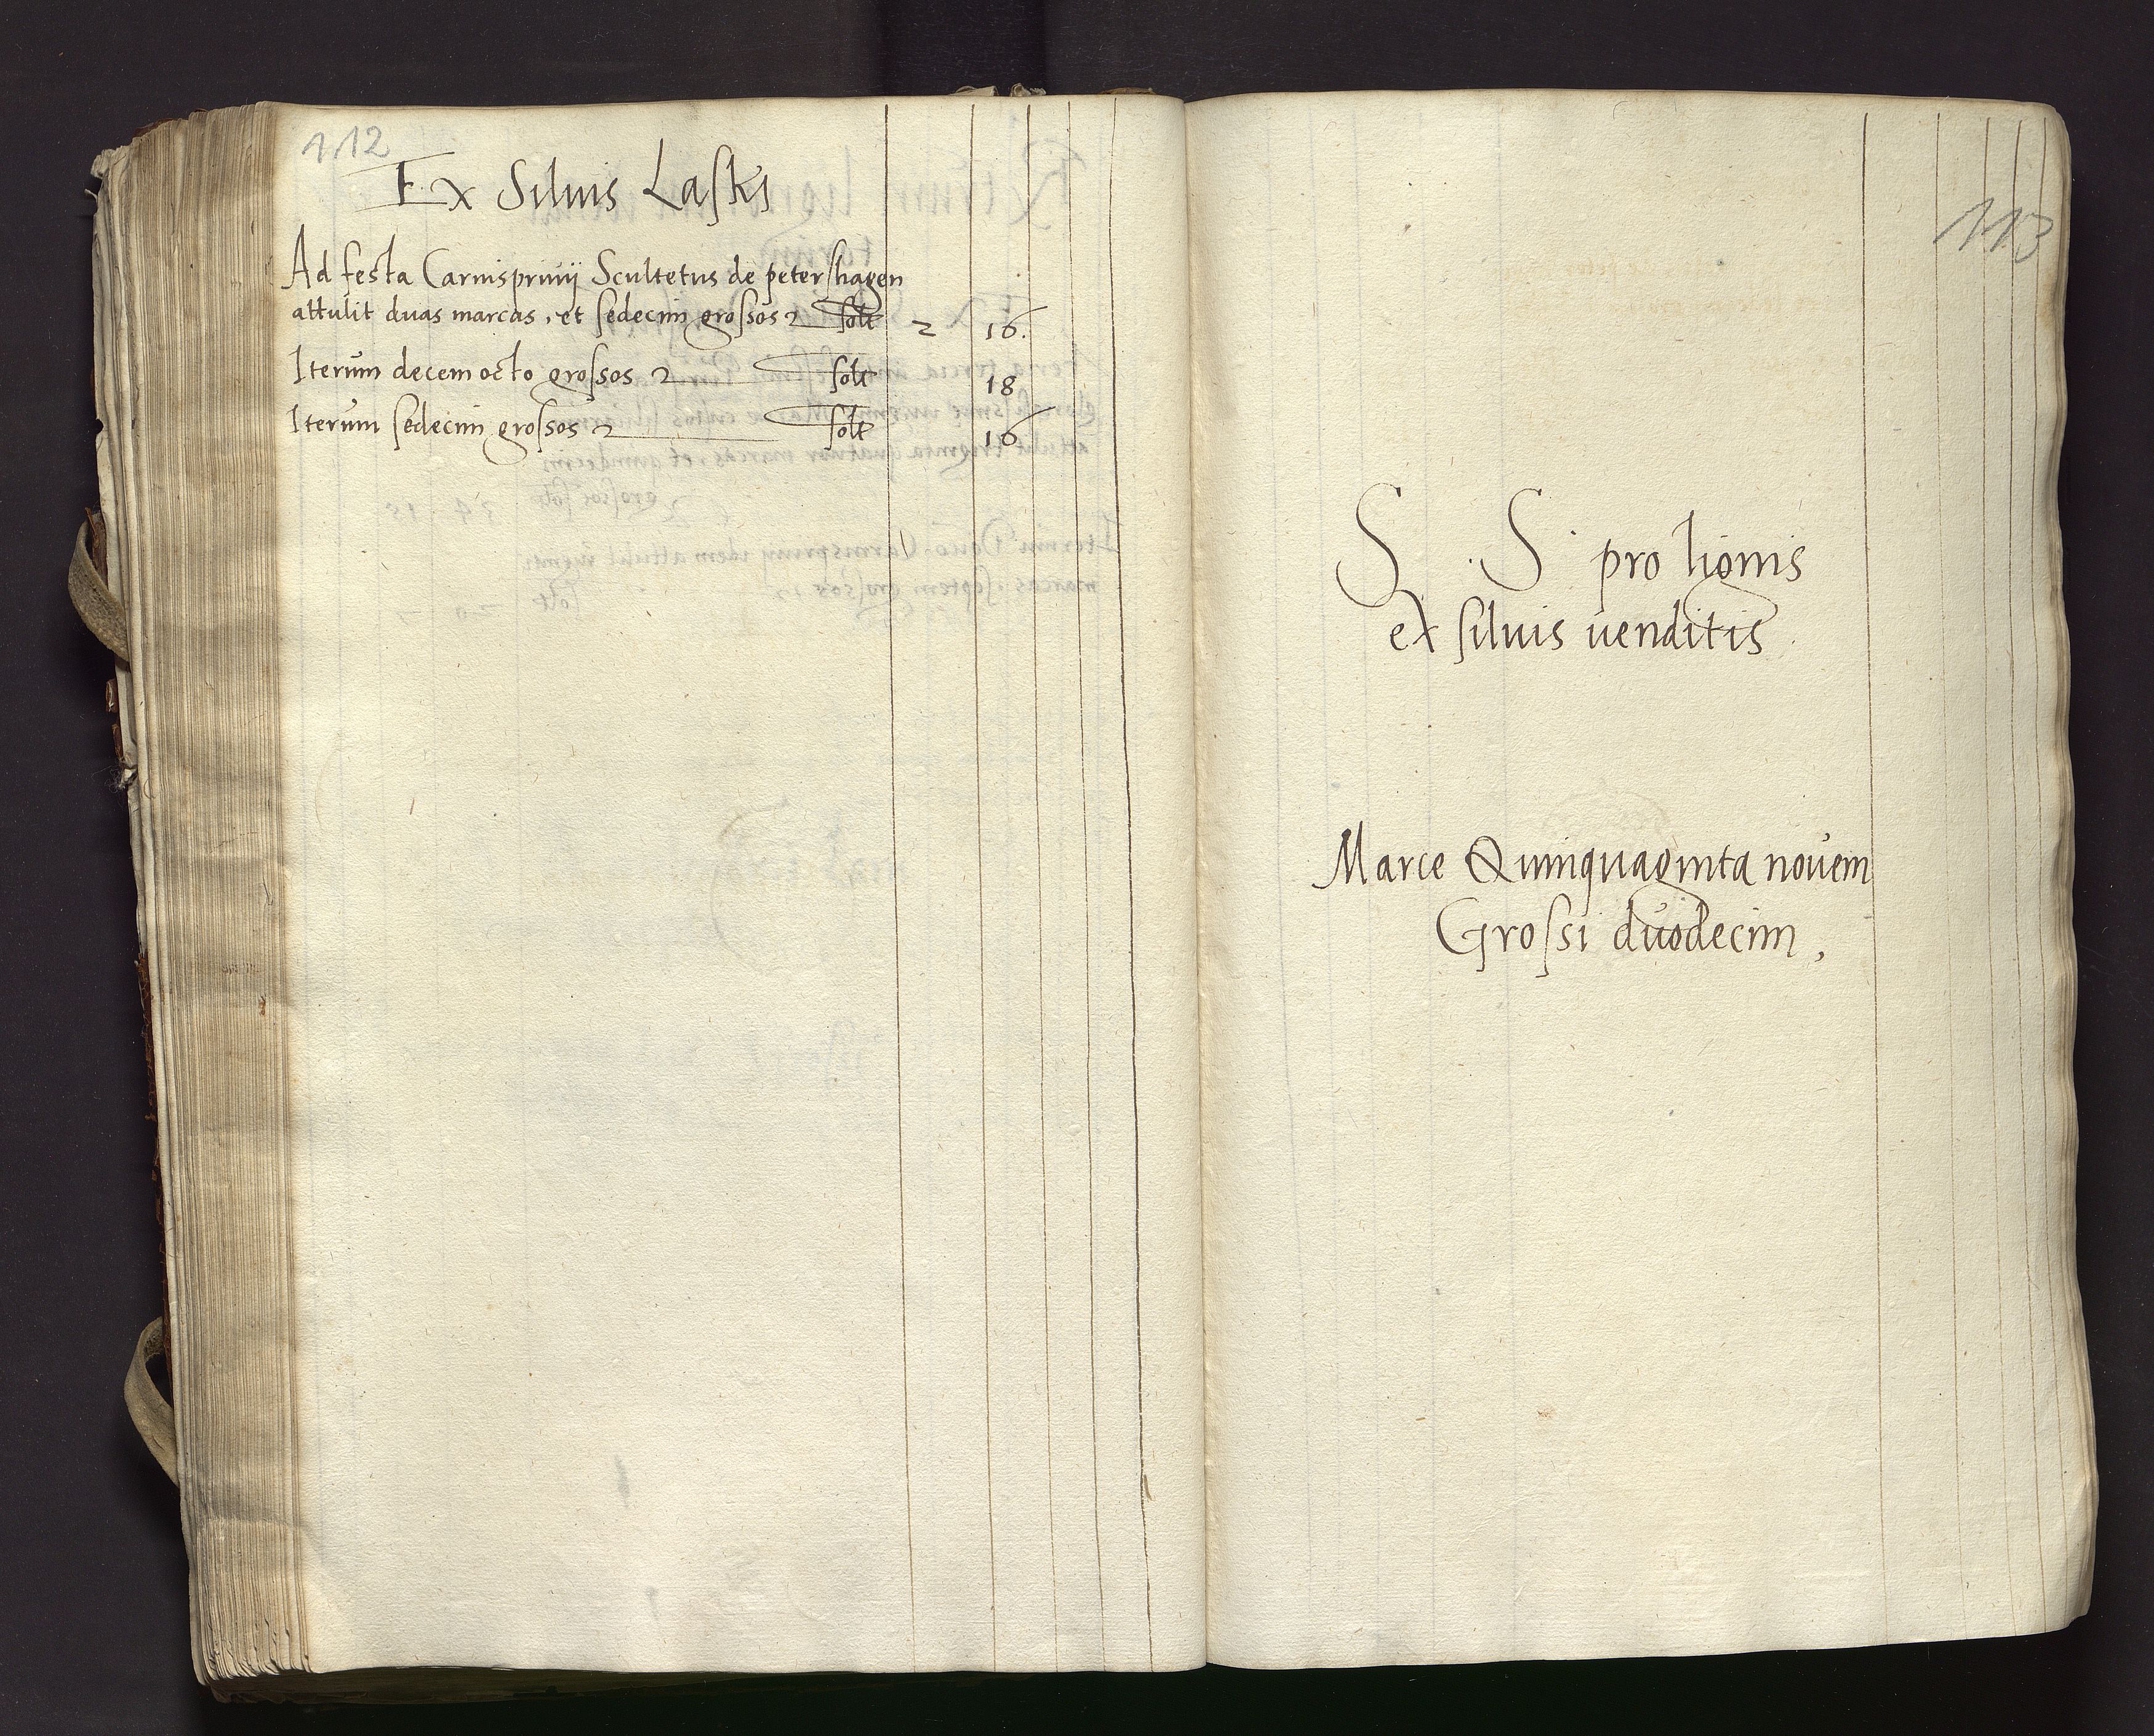 112
Ex Siluis Laski
Ad festa Carnispriuij Scultetus de petershagen
attulit duas marcas, et sedecim grossos solt 2 16.
Iterum decemocto grossos solt 18
Iterum sedecim grossos solt 16
113
S. S. pro lignis
ex siluis uenditis
Marce Quinquaginta nouem
Grossi duodecim,